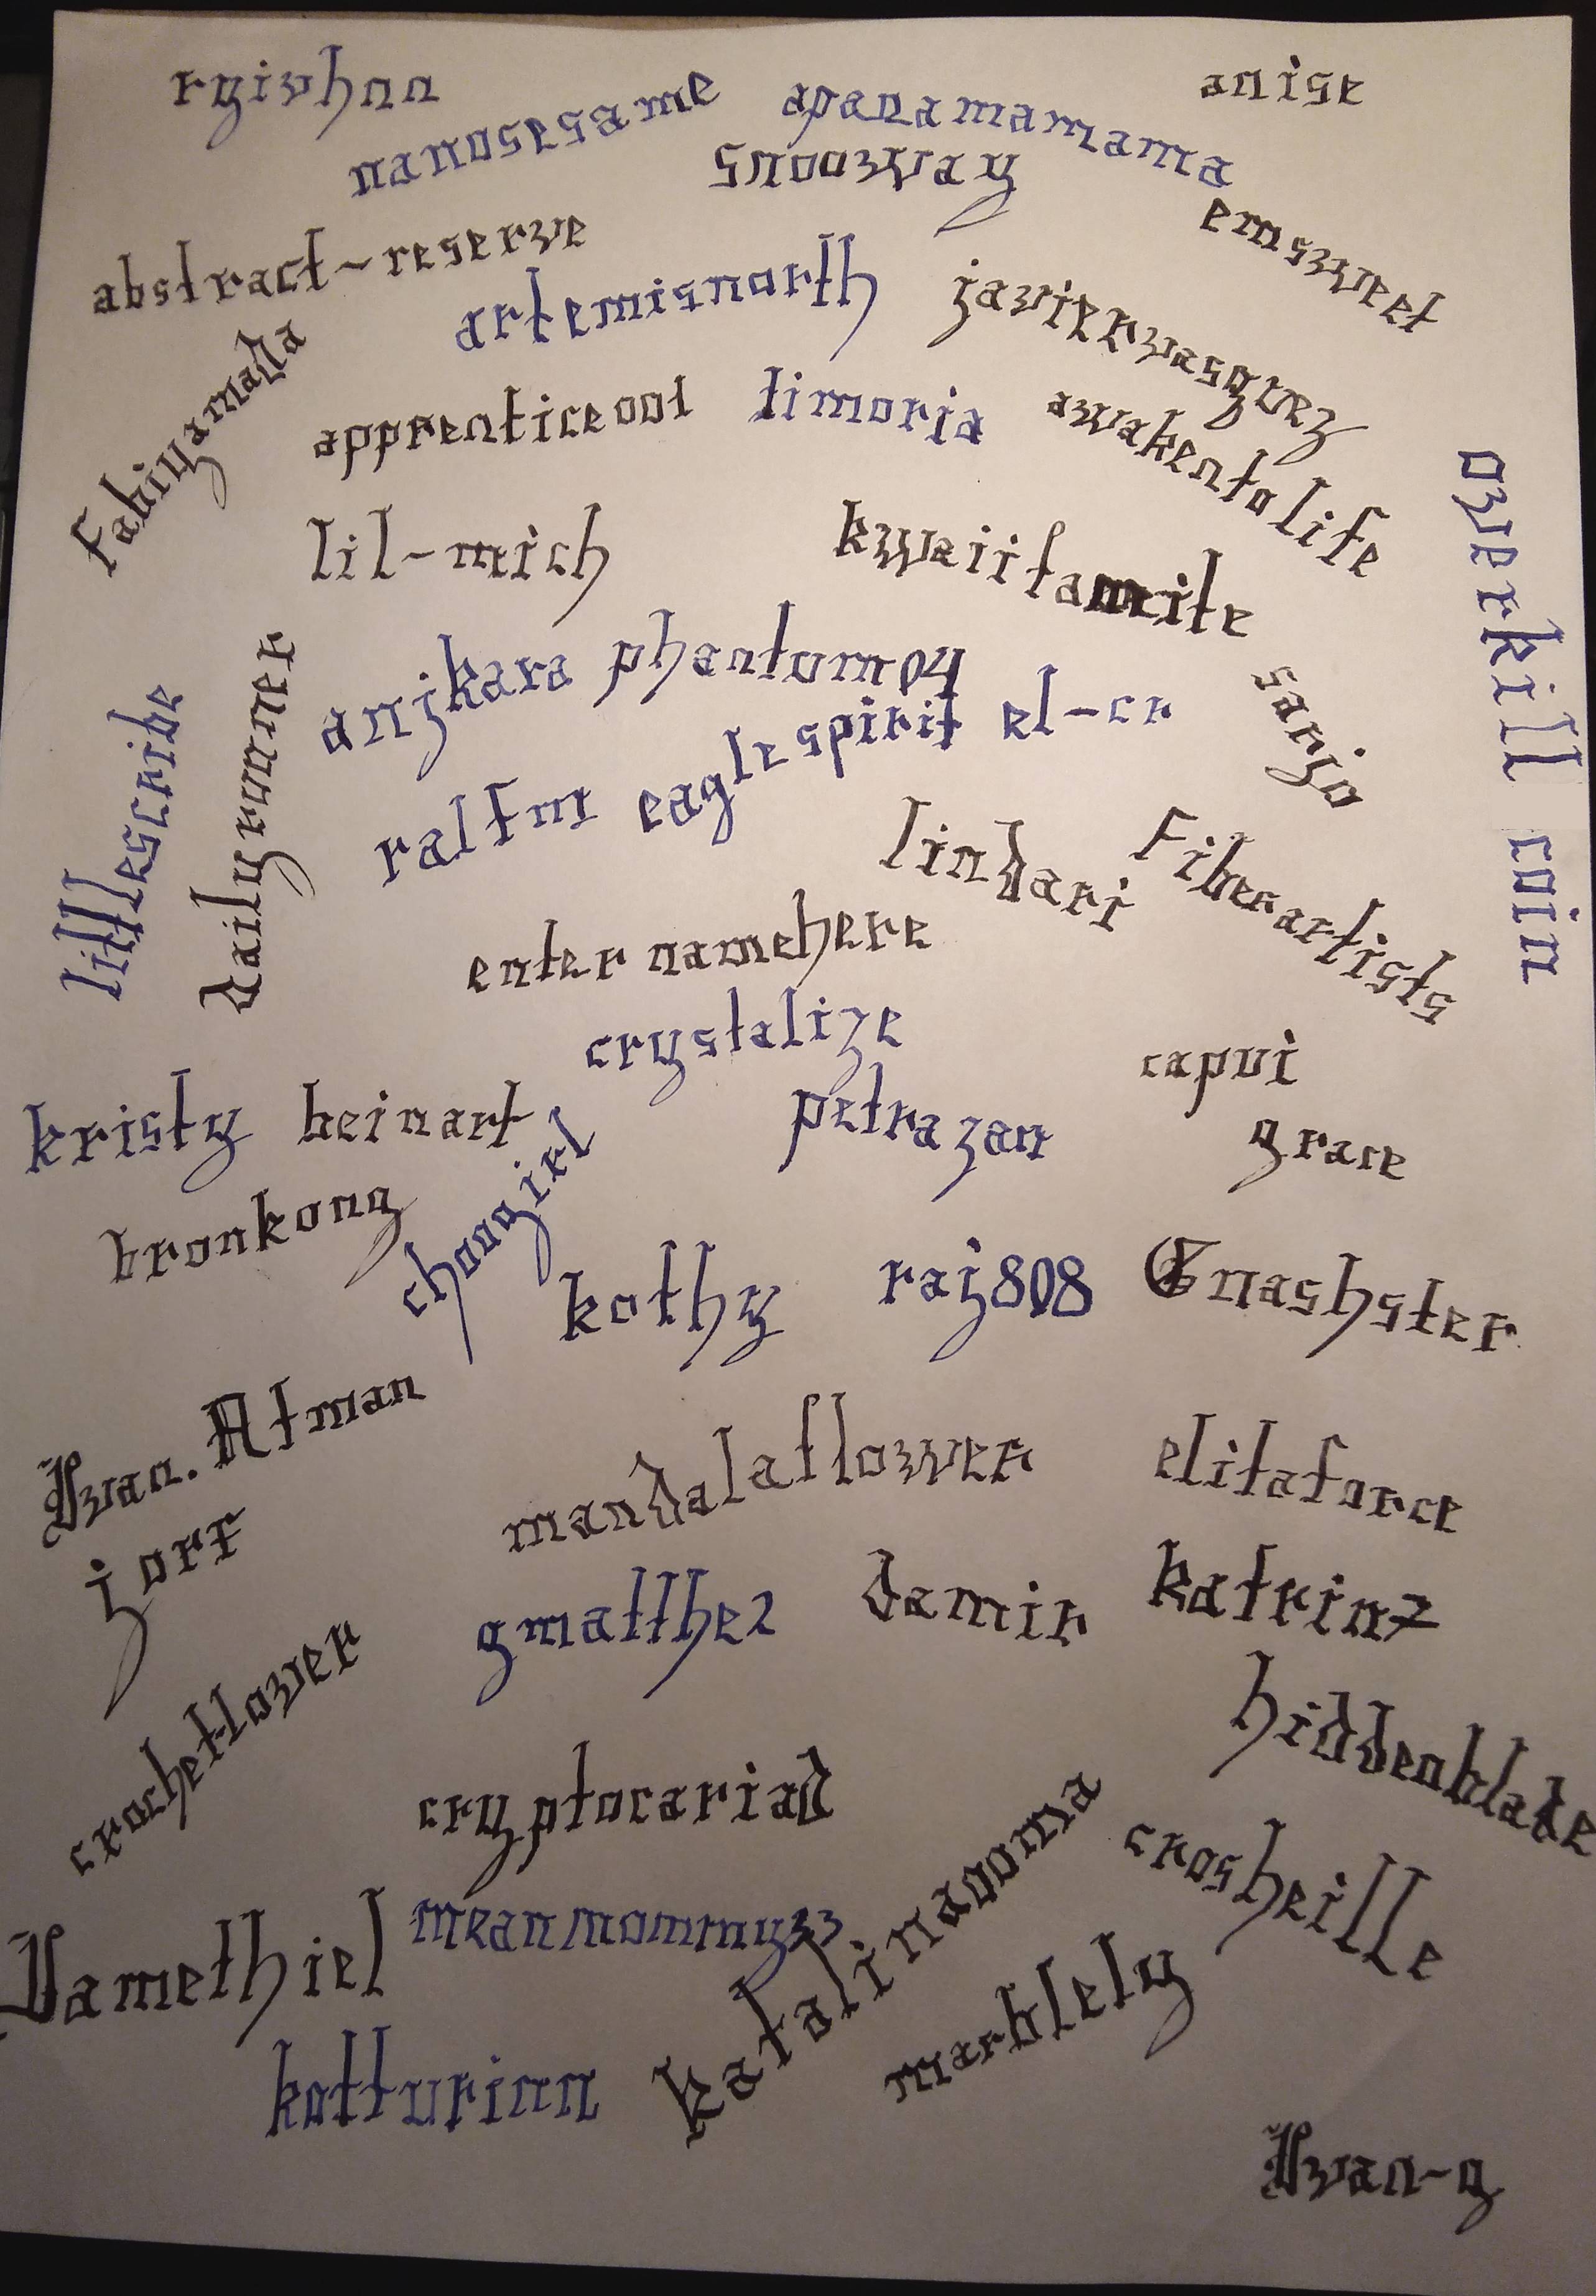 rgivhan
anise
nanosesame
apanamamama
snoozway
emsweet
abstract-reserve
artemisnorth
javiervasquez
Fabiyamada
apprentice001
timoria
awakentolife
overkill coin
lil-mich
kwaiitamite
anjkara
phantom04
sanjo
littlescribe
dailyronner
ralfm
eaglespirit
el-cr
lindari
Fiberartists
enternamehere
crystalize
capui
kristy
beinart
petrazan
grace
bronkong
choogirl
kothy
raj808
Gnashster
Ivan.Atman
mandalaflower
elitaforce
jorf
gmatthe2
damir
katrin7
crochetlower
hiddenblade
cryptocariad
crosheille
Vamethiel
meanmommy33
katalinaooma
marblely
kotturinn
Ivan-g